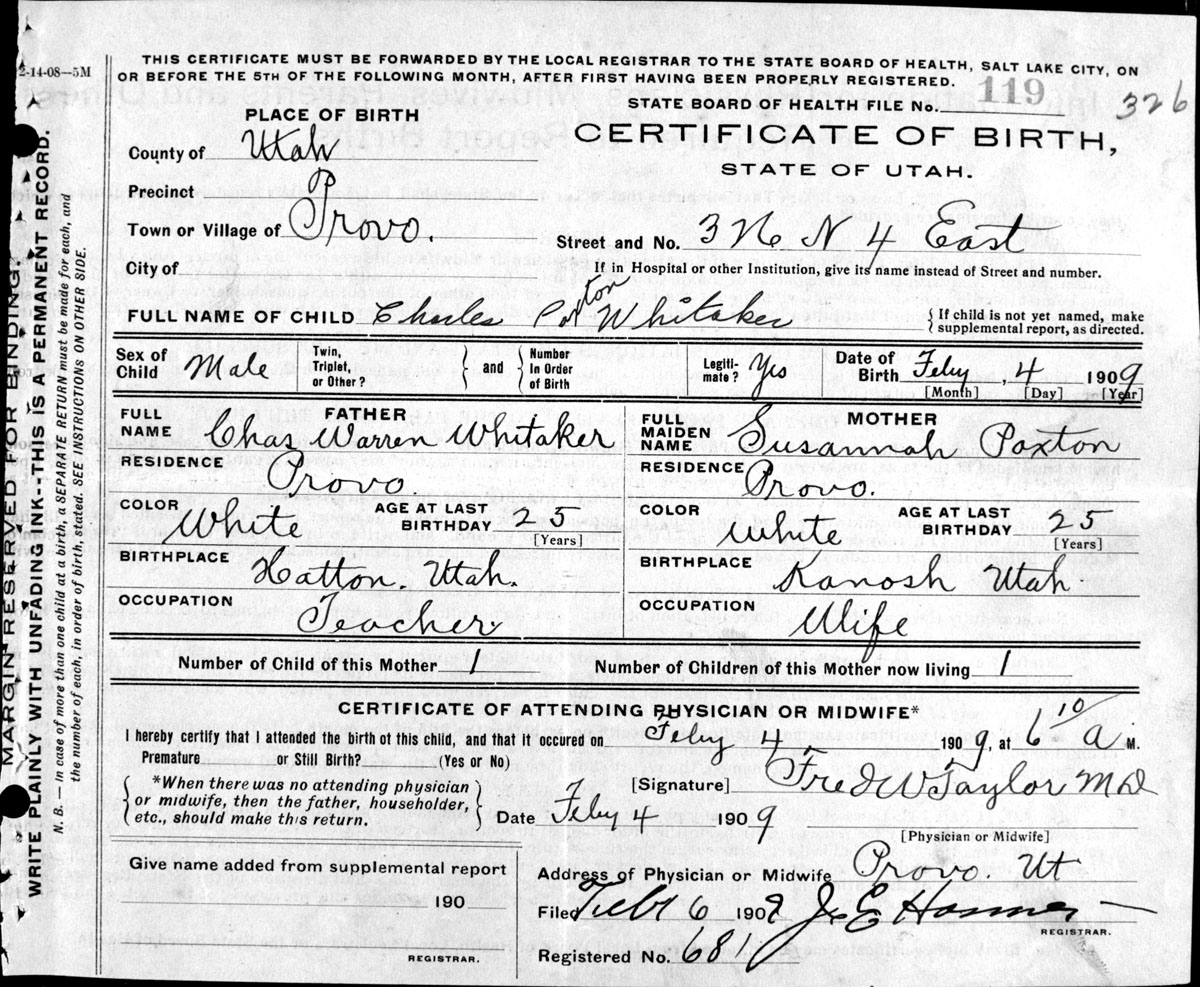 2-14-08—5M
THIS CERTIFICATE MUST BE FORWARDED BY THE LOCAL REGISTRAR TO THE STATE BOARD OF HEALTH, SALT LAKE CITY, ON
OR BEFORE THE 5TH OF THE FOLLOWING MONTH, AFTER FIRST HAVING BEEN PROPERLY REGISTERED.
STATE BOARD OF HEALTH FILE No. 119 326
PLACE OF BIRTH
CERTIFICATE OF BIRTH,
STATE OF UTAH.
County of Utah
Precinct
Town or Village of Provo.
Street and No. 376 N 4 East
City of
If in Hospital or other Institution, give its name instead of Street and number.
FULL NAME OF CHILD Charles Paxton Whitaker
{ If child is not yet named, make
supplemental report, as directed.
Sex of Child Male
Twin, Triplet, or Other?
{ and } Number In Order of Birth
Legiti-mate? Yes
Date of Birth Feby, 4 1909
[Month] [Day] [Year]
FATHER
FULL NAME Chas Warren Whitaker
RESIDENCE Provo.
COLOR White
AGE AT LAST BIRTHDAY 25
[Years]
BIRTHPLACE Hatton. Utah.
OCCUPATION Teacher
MOTHER
FULL MAIDEN NAME Susannah Paxton
RESIDENCE Provo.
COLOR White
AGE AT LAST BIRTHDAY 25
[Years]
BIRTHPLACE Kanosh Utah
OCCUPATION Wife
Number of Child of this Mother 1
Number of Children of this Mother now living 1
CERTIFICATE OF ATTENDING PHYSICIAN OR MIDWIFE*
I hereby certify that I attended the birth of this child, and that it occured on Feby 4 1909, at 6 10 a M.
Premature or Still Birth? (Yes or No)
{ *When there was no attending physician
or midwife, then the father, householder,
etc., should make this return. }
[Signature] Fred W Taylor MD
Date Feby 4 1909
[Physician or Midwife]
Give name added from supplemental report
190
REGISTRAR.
Address of Physician or Midwife Provo. Ut
Filed Feb 6 1909 J. E
REGISTRAR.
Registered No. 681
MARGIN RESERVED FOR BINDING.
WRITE PLAINLY WITH UNFADING INK--THIS IS A PERMANENT RECORD.
N. B. — In case of more than one child at a birth, a SEPARATE RETURN must be made for each, and
the number of each, in order of birth, stated. SEE INSTRUCTIONS ON OTHER SIDE.